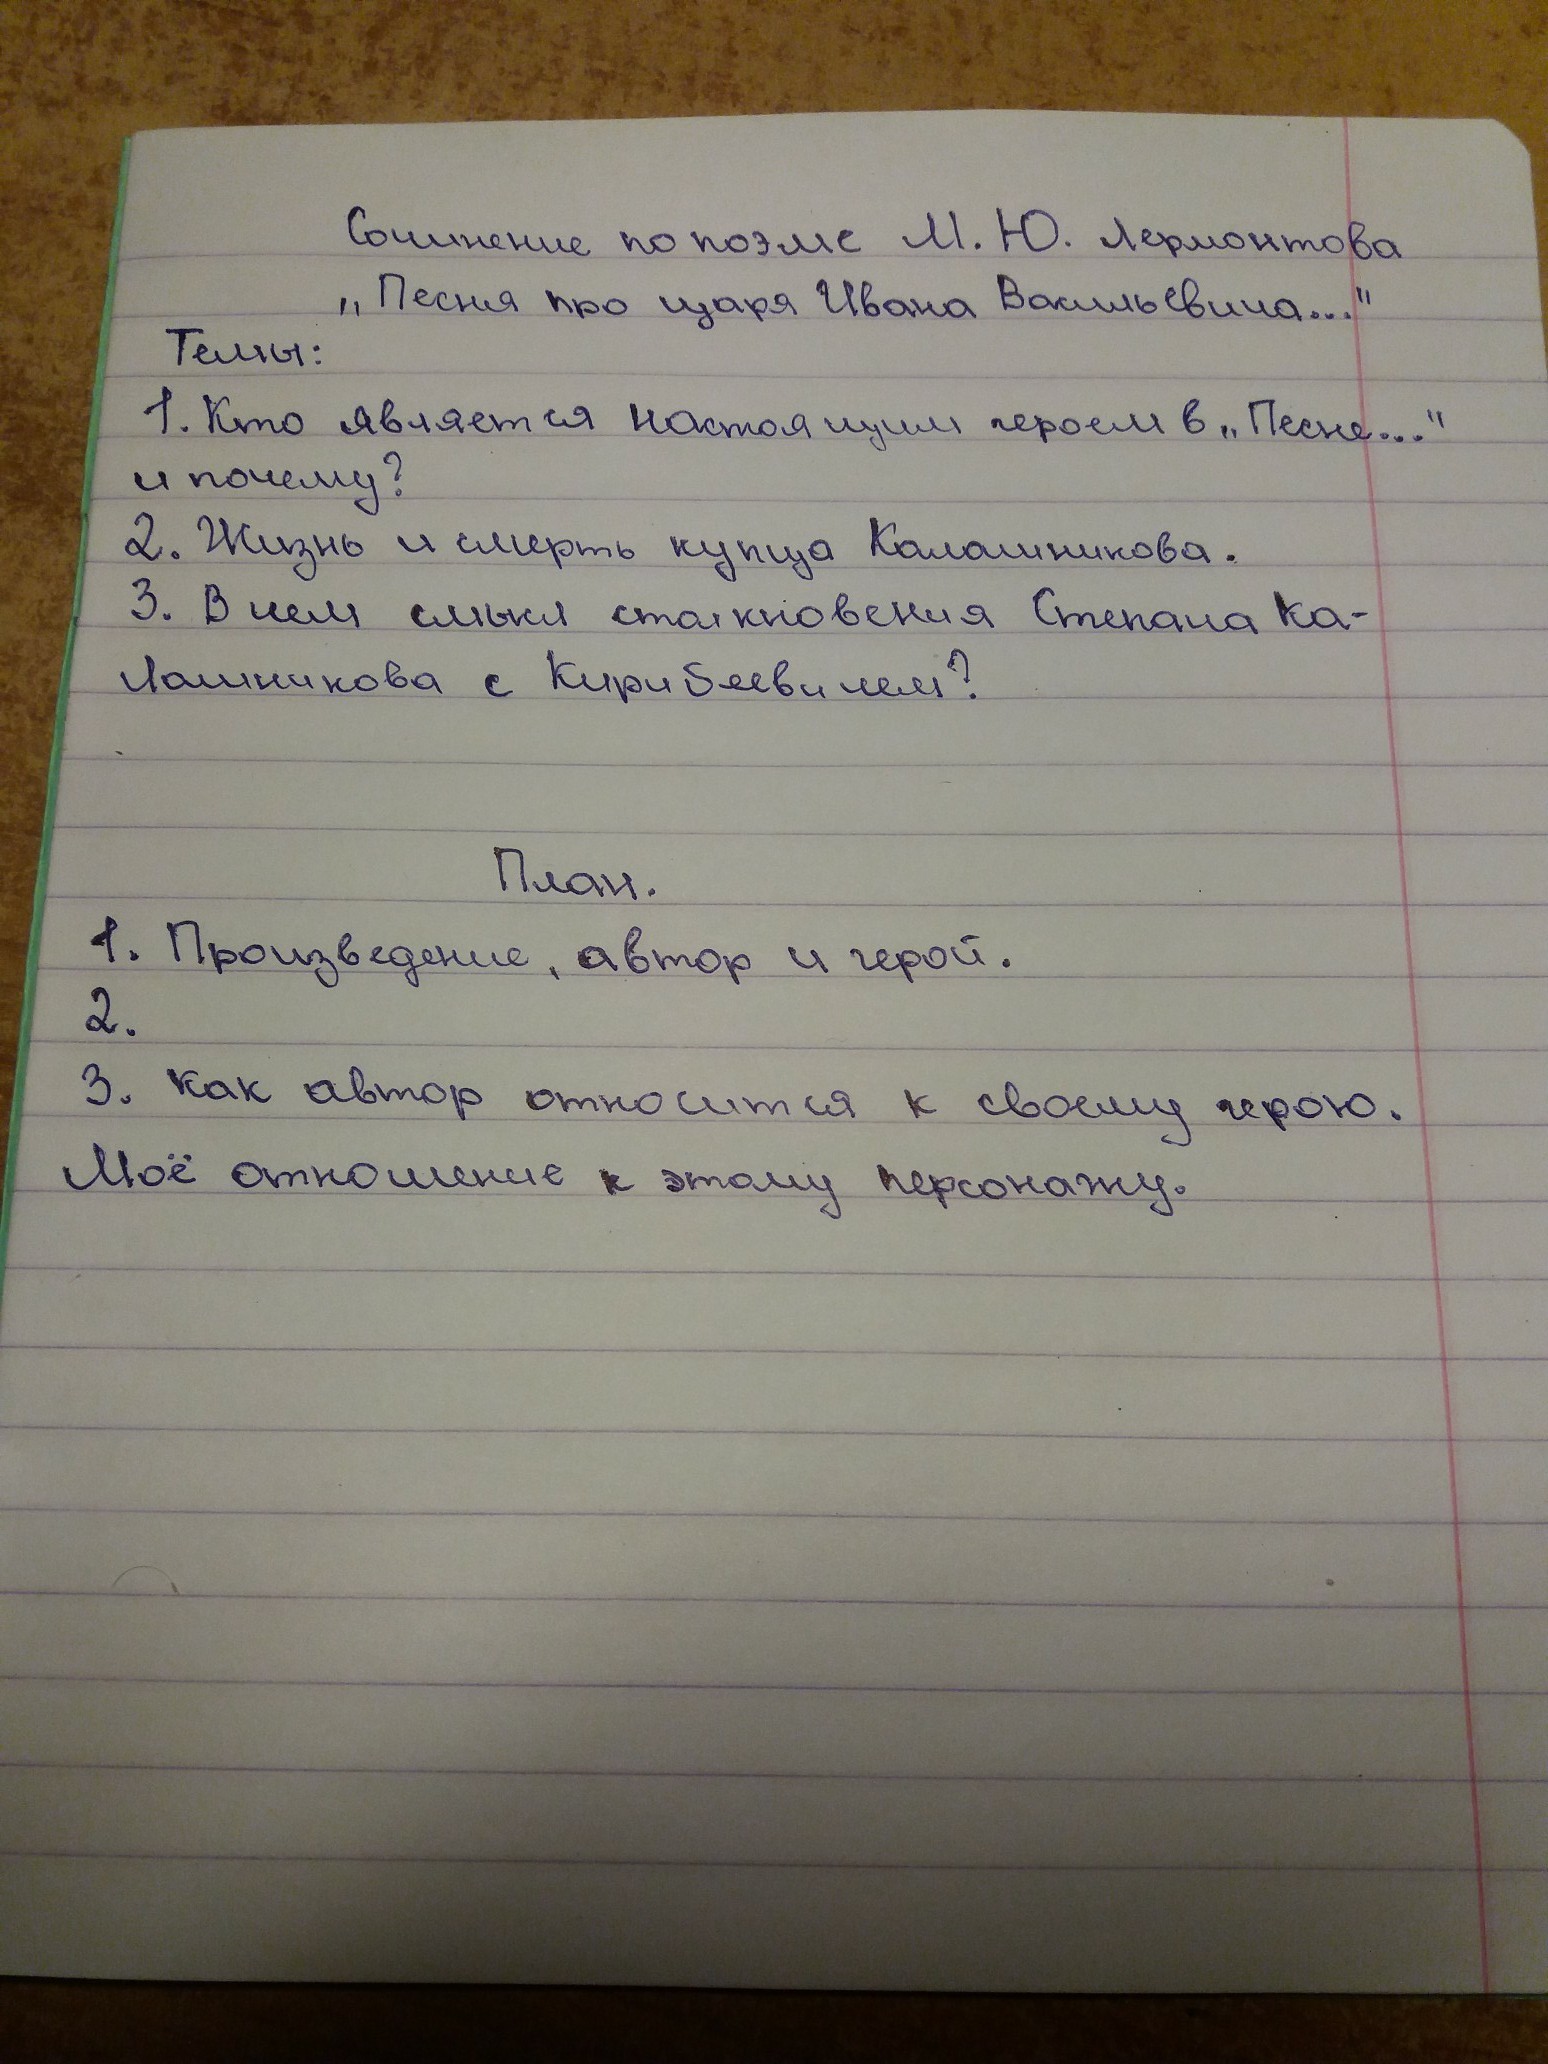 Сочинение по поэме М. Ю. Лермонтова
„Песня про царя Ивана Васильевича..."
Темы:
1. Кто является настоящим героем в „Песне..."
и почему?
2. Жизнь и смерть купца Калашникова.
3. В чем смысл столкновения Степана Ка-
лашникова с Кирибеевичем?
План.
1. Произведение, автор и герой.
2.
3. Как автор относится к своему герою.
Моё отношение к этому персонажу.